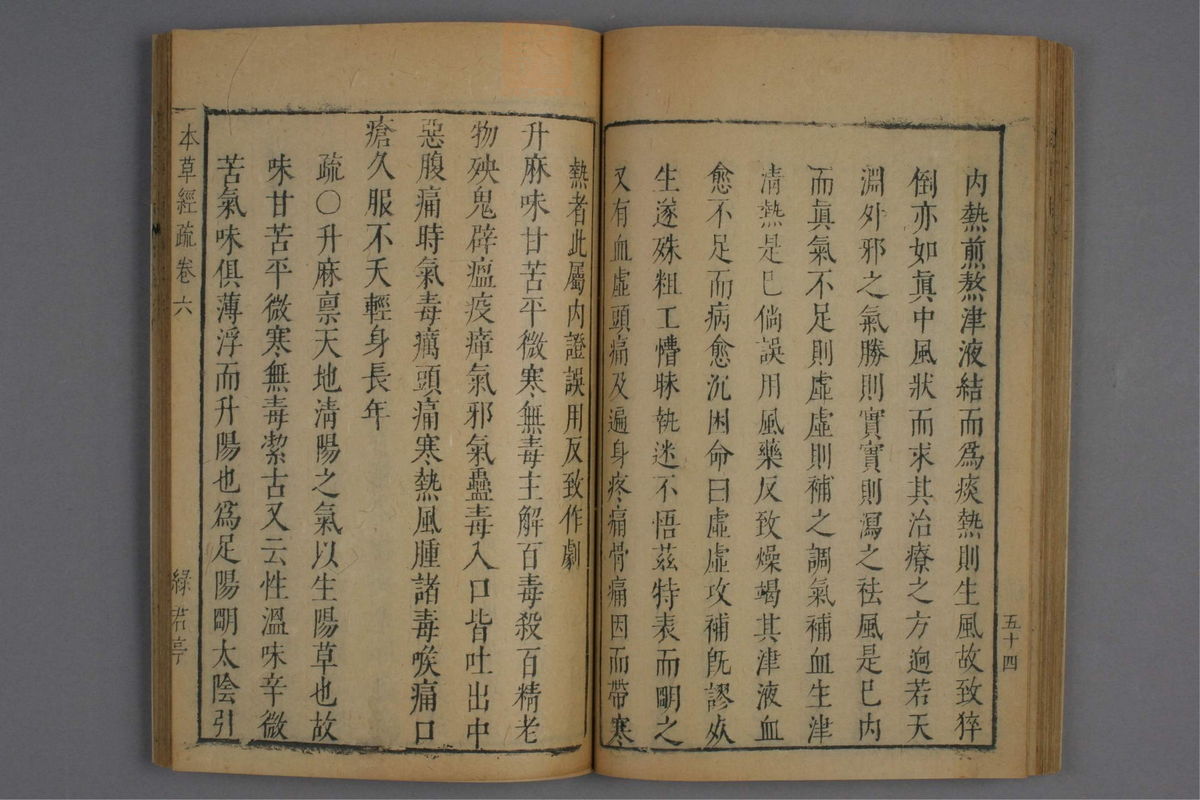 五十四
內熱煎熬津液結而爲痰熱則生風故致猝
倒亦如眞中風狀而求其治療之方迥若天
淵外邪之氣勝則實實則瀉之祛風是已內
而眞氣不足則虛虛則補之調氣補血生津
淸熱是已倘誤用風藥反致燥竭其津液血
愈不足而病愈沉困命曰虛虛攻補旣謬殀
生遂殊粗工懵昧執迷不悟茲特表而朙之
又有血虛頭痛及遍身疼痛骨痛因而帶寒
熱者此屬內證誤用反致作劇
升麻味甘苦平微寒無毒主解百毒殺百精老
物殃鬼辟瘟疫瘴氣邪氣蠱毒入口皆吐出中
惡腹痛時氣毒癘頭痛寒熱風腫諸毒喉痛口
瘡久服不夭輕身長年
疏〇升麻禀天地淸陽之氣以生陽草也故
味甘苦平微寒無毒潔古又云性溫味辛微
苦氣味俱薄浮而升陽也爲足陽朙太陰引
本草經疏卷六
綠君亭